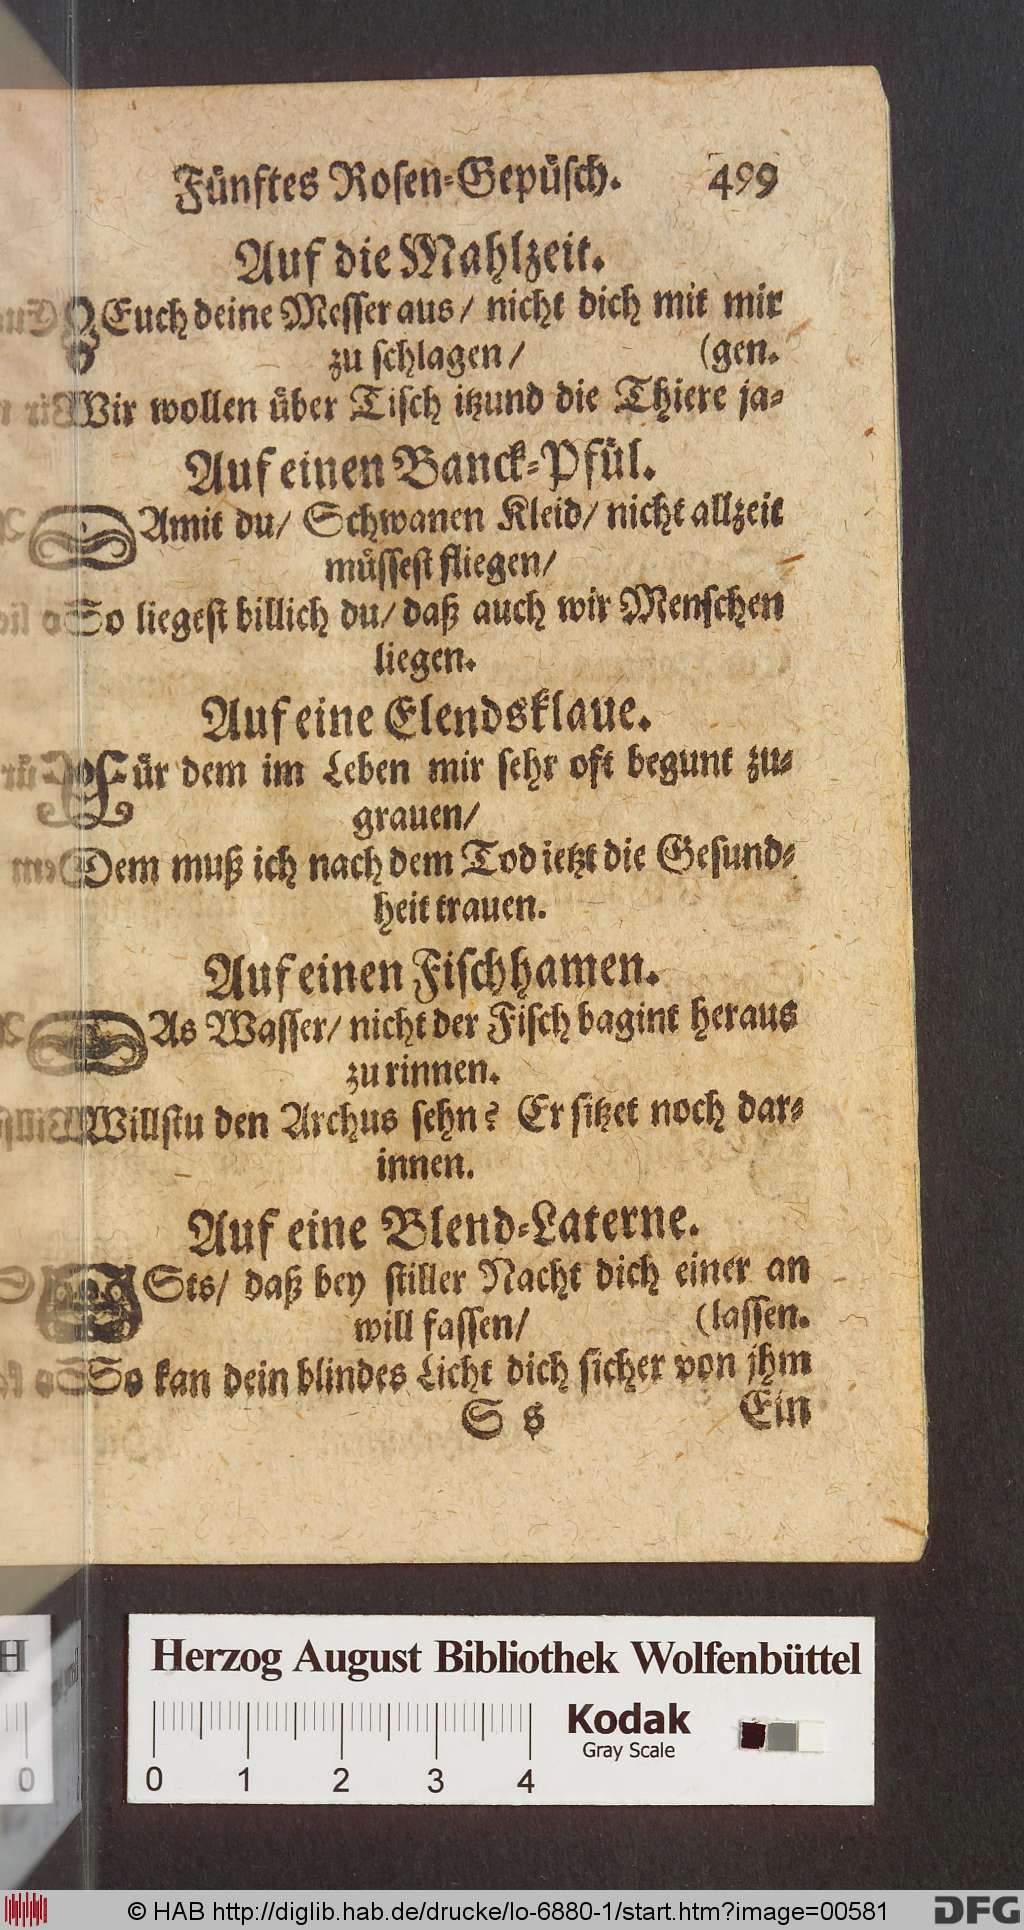 Fünftes Rosen-Gepüsch. 499
Auf die Mahlzeit.
ZEuch deine Messer aus/ nicht dich mit mir
zu schlagen/ (gen.
Wir wollen über Tisch itzund die Thiere ja-
Auf einen Banck-Pfül.
DAmit du/ Schwanen Kleid/ nicht allzeit
müssest fliegen/
So liegest billich du/ daß auch wir Menschen
liegen.
Auf eine Elendsklaue.
Für dem im Leben mir sehr oft begunt zu-
grauen/
Dem muß ich nach dem Tod ietzt die Gesund-
heit trauen.
Auf einen Fischhamen.
DAs Wasser/ nicht der Fisch bagint heraus
zu rinnen.
Willstu den Archus sehn? Er sitzet noch dar-
innen.
Auf eine Blend-Laterne.
ISts/ daß bey stiller Nacht dich einer an
will fassen/ (lassen.
So kan dein blindes Licht dich sicher von jhm
S s Ein
Herzog August Bibliothek Wolfenbüttel
Kodak
Gray Scale
0 1 2 3 4
H
0
© HAB http://diglib.hab.de/drucke/lo-6880-1/start.htm?image=00581
DFG